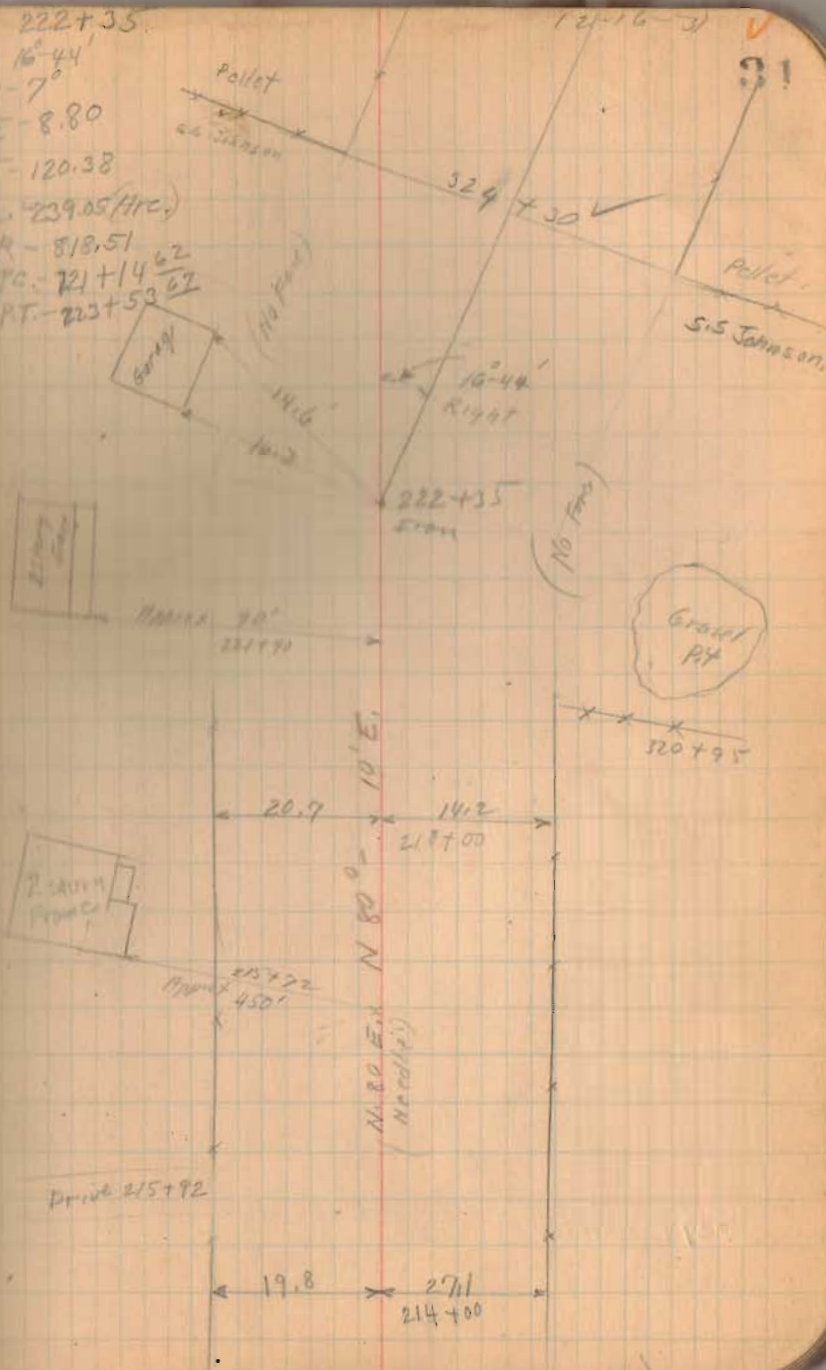 222+35
12-16-31
31
16°-44'
7°
8.80
120.38
239.05 (Arc.)
R - 818.51
P.C. - 221+14 62
P.T. - 223+53 67
Pellet
S.S Johnson
324+30
Pellet
S.S Johnson.
(No Fence)
Garage
14.6'
16.3
16°-44'
Right
222+35
Iron
(No Fence)
2 Story
Approx 90'
221+90
Gravel
Pit
320+95
N 80° - 10' E.
20.7
14.2
218+00
2-Story
Frame
Approx 215+72
450'
N. 80 E.
(Needle)
Drive 215+92
19.8
27.1
214+00